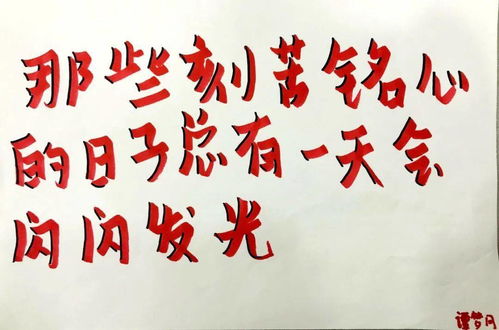 那些刻苦铭心
的日子总有一天会
闪闪发光
谭梦月